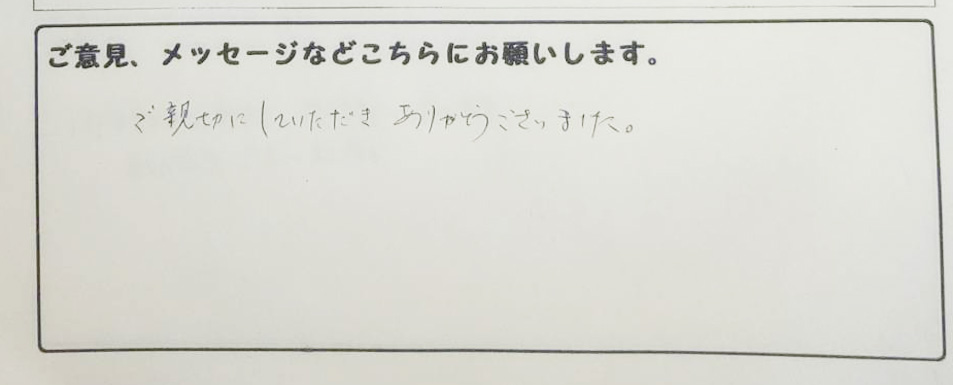 ご意見、メッセージなどこちらにお願いします。
ご親切にしていただき ありがとうございました。